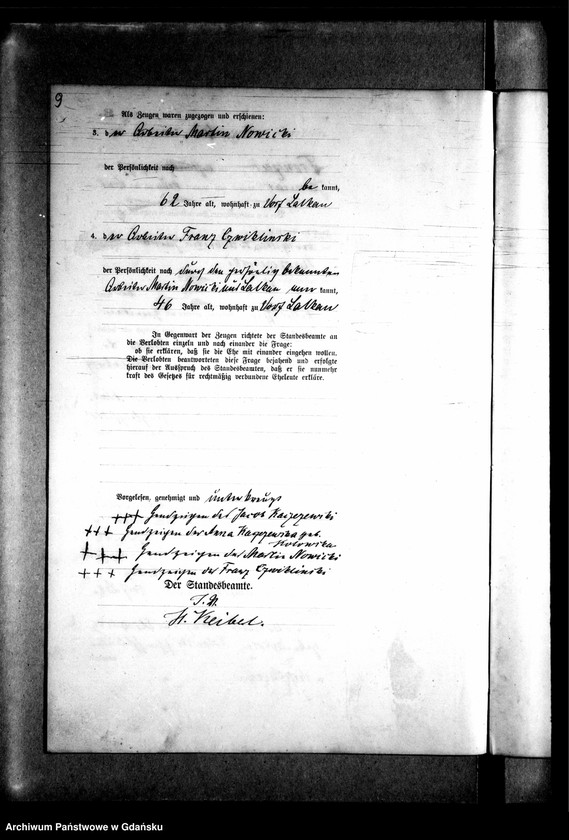 9
Als Zeugen waren zugezogen und erschienen:
3. der Arbeiter Martin Nowicki
der Persönlichkeit nach
be kannt,
62 Jahre alt, wohnhaft zu Dorf Lalkau
4. der Arbeiter Franz Czwiklinski
der Persönlichkeit nach durch den persönlich bekannten
Arbeiter Martin Nowicki aus Lalkau aner kannt,
46 Jahre alt, wohnhaft zu Dorf Lalkau
In Gegenwart der Zeugen richtete der Standesbeamte an
die Verlobten einzeln und nach einander die Frage:
ob sie erklären, daß sie die Ehe mit einander eingehen wollen.
Die Verlobten beantworteten diese Frage bejahend und erfolgte
hierauf der Ausspruch des Standesbeamten, daß er sie nunmehr
kraft des Gesetzes für rechtmäßig verbundene Eheleute erkläre.
Vorgelesen, genehmigt und unterkreuzt
+++ Handzeichen des Jacob
+++ Handzeichen der Anna geb.
+++ Handzeichen des Martin Nowicki
+++ Handzeichen des Franz Czwiklinski
Der Standesbeamte.
I. V.
H. Keibel.
Archiwum Państwowe w Gdańsku